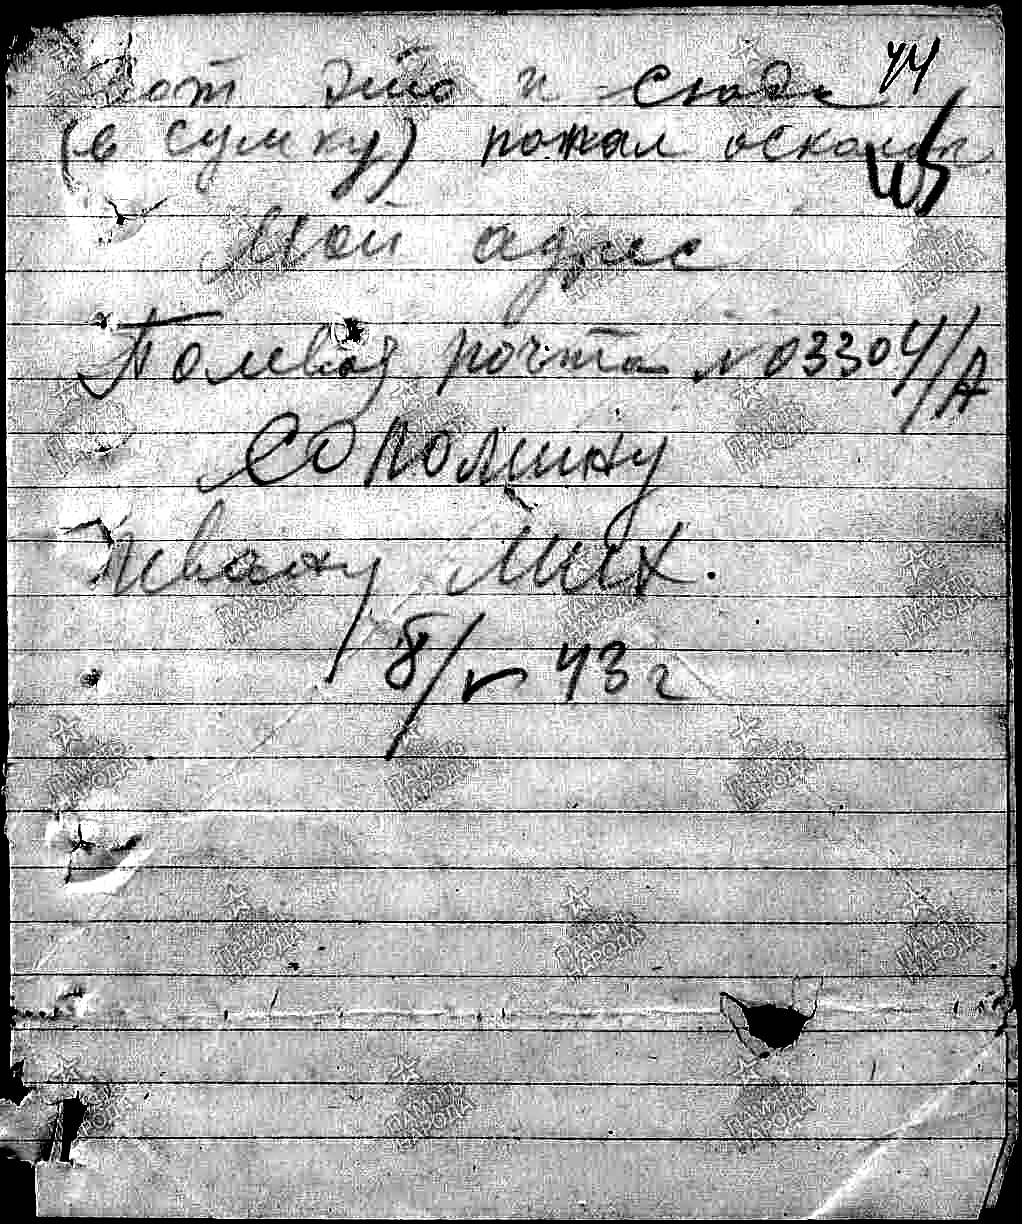 44
Вот это и сюда
(в сумку) попал осколок
Мой адрес
Полевая почта № 03304/А
Сопомину
Ивану Мих.
8/V 43 г
ПАМЯТЬ НАРОДА